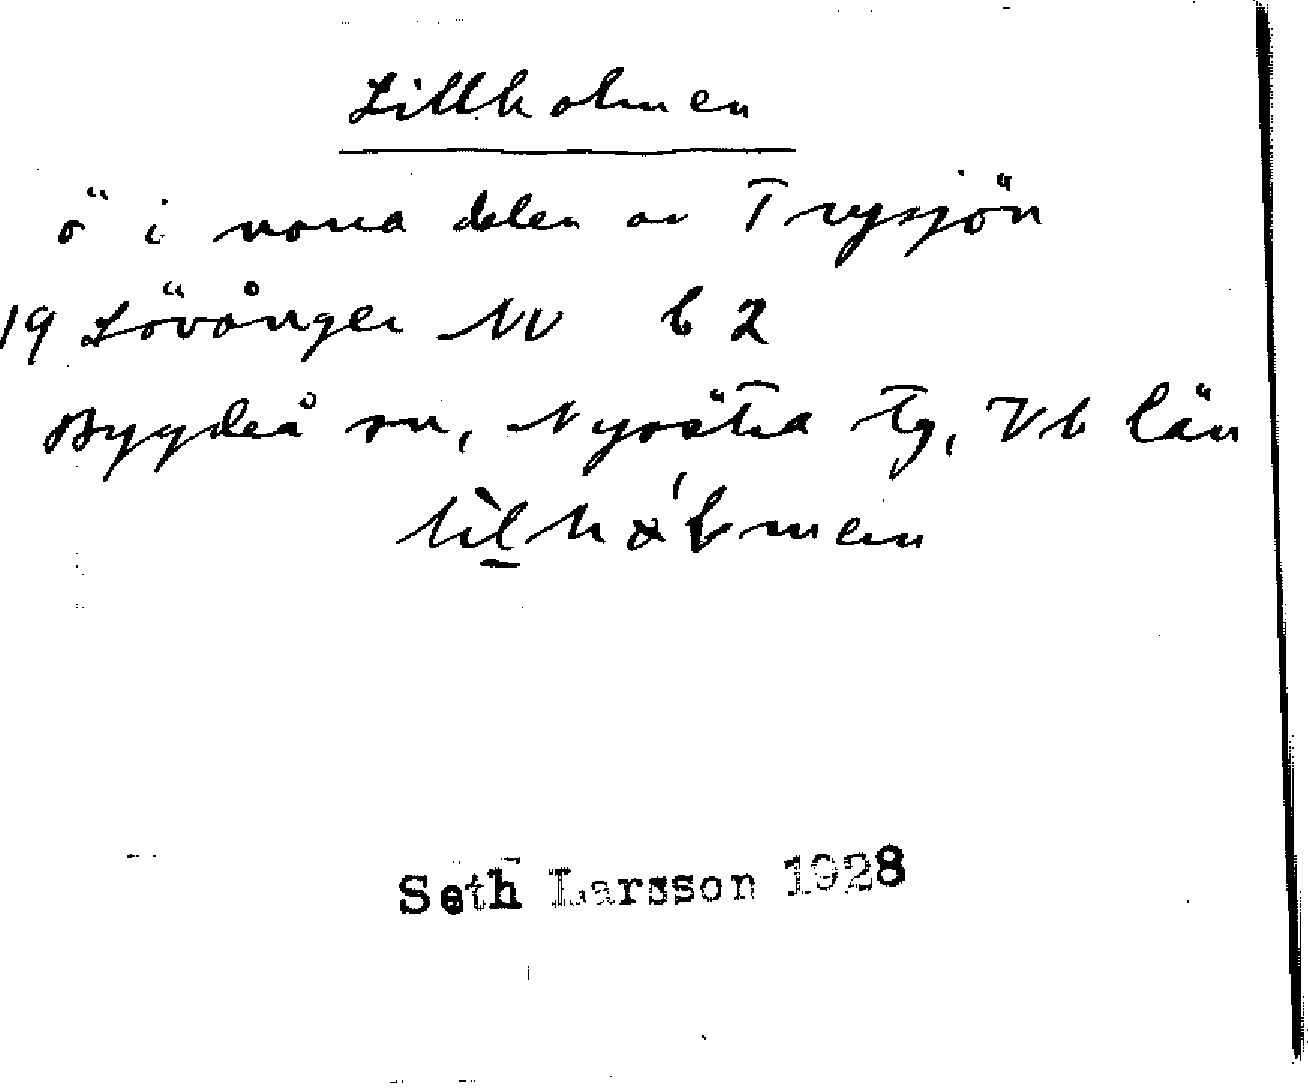 Lillholmen
ö i norra delen av Trysjön
19 Lövånger NV b 2
Bygdeå sn, Nysätra tg, Vb län
Seth Larsson 1928